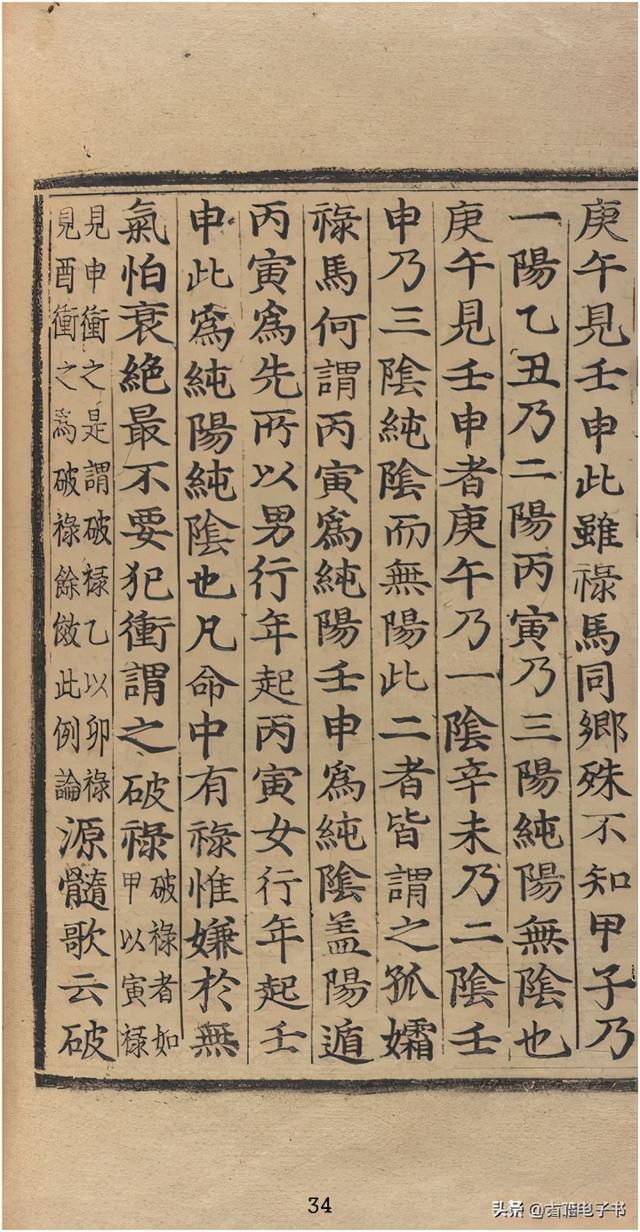 庚午見壬申此雖祿馬同鄉殊不知甲子乃
一陽乙丑乃二陽丙寅乃三陽純陽無陰也
庚午見壬申者庚午乃一陰辛未乃二陰壬
申乃三陰純陰而無陽此二者皆謂之孤孀
祿馬何謂丙寅爲純陽壬申爲純陰盖陽遁
丙寅爲先所以男行年起丙寅女行年起壬
申此爲純陽純陰也凡命中有祿惟嫌於無
氣怕衰絶最不要犯衝謂之破祿破祿者如
甲以寅禄
見申衝之是謂破禄乙以卯禄
見酉衝之爲破禄餘倣此例論源髓歌云破
34
头条 @古籍电子书